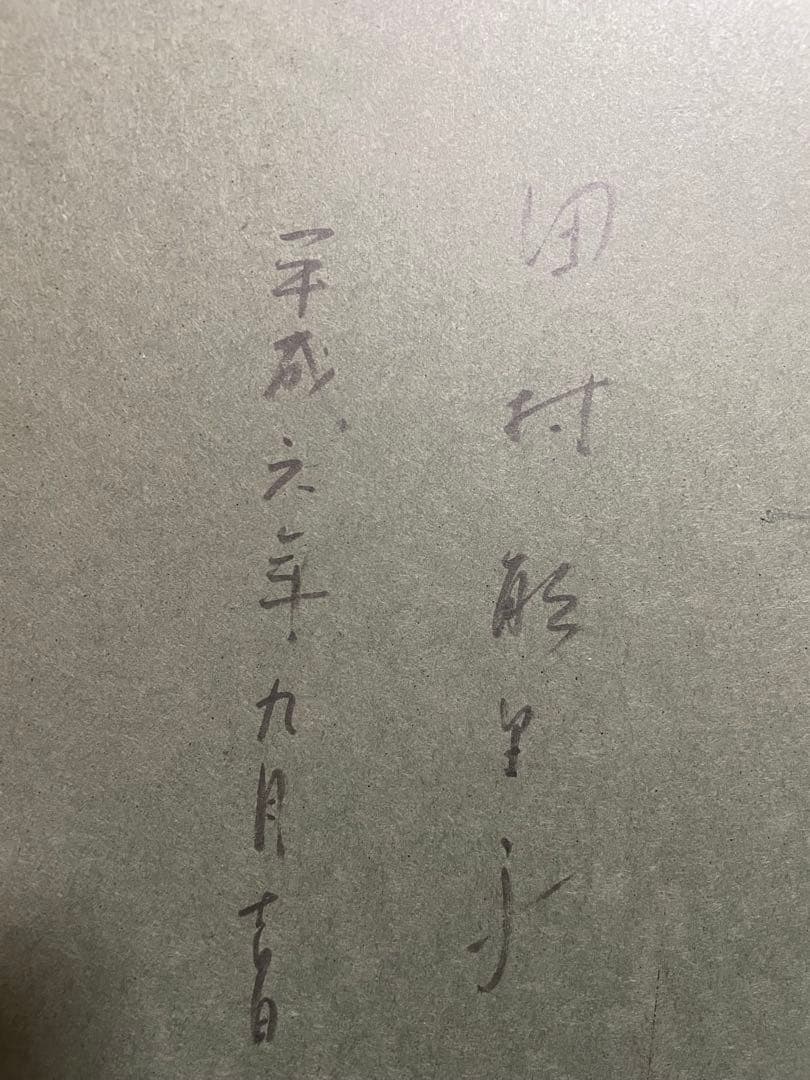 田村能里子
平成六年九月吉日